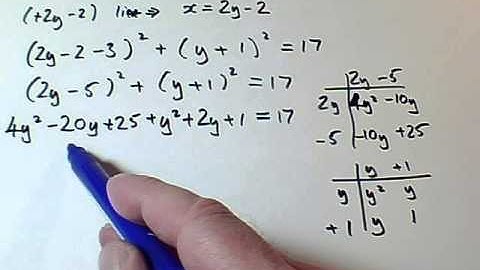 (+2y-2) line => x = 2y - 2
(2y - 2 - 3)² + (y + 1)² = 17
(2y - 5)² + (y + 1)² = 17
4y² - 20y + 25 + y² + 2y + 1 = 17
2y - 5
2y 4y² -10y
-5 -10y +25
y +1
y y² y
+1 y 1